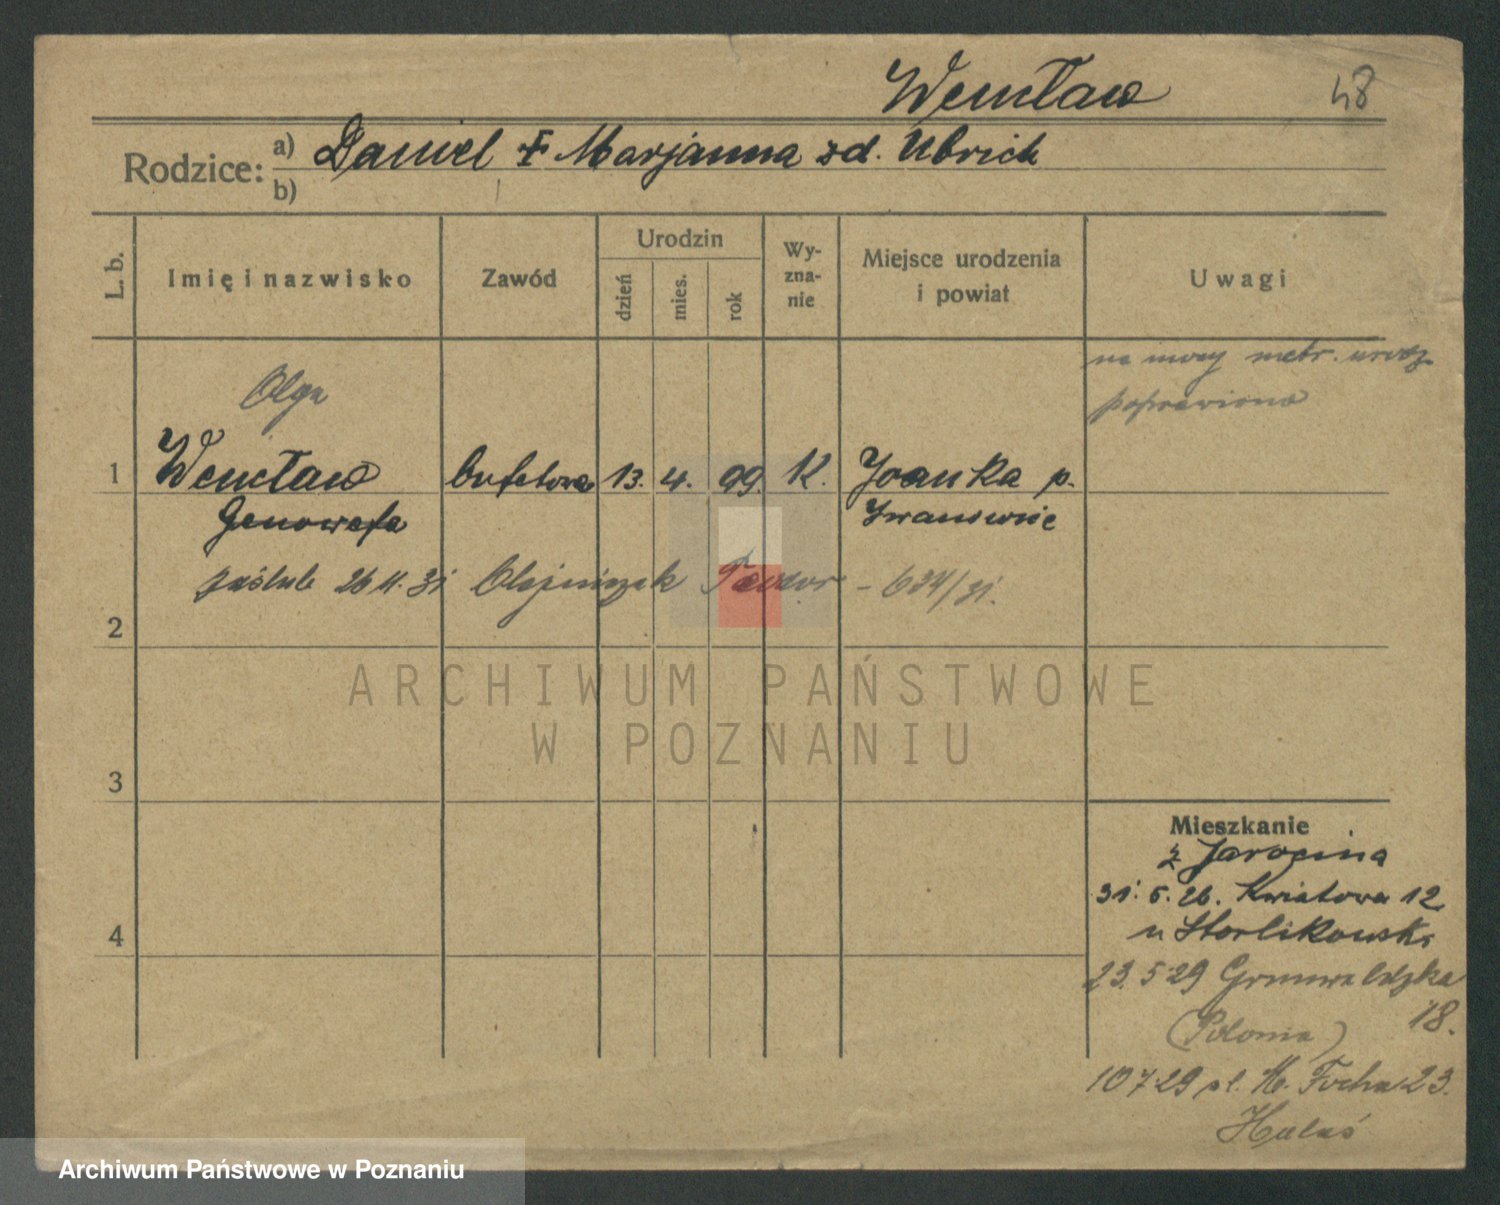 Wencław 48
Rodzice: a) Daniel + Marjanna zd. Ubrich
b)
L. b. Imię i nazwisko Zawód Urodzin dzień mies. rok Wy-zna-nie Miejsce urodzenia i powiat Uwagi
na mocy metr. urodz
poprawiona
Olga
1 Wencław bufetowa 13. 4. 99. K. Joanka p.
Genowefa Iwanowice
zaślub 26 11. 31 Olejniczak Teodor - 634/31.
2
ARCHIWUM PAŃSTWOWE
W POZNANIU
3
Mieszkanie
z Jarocina
31. 5. 26. Kwiatowa 12
4 u Storlikowski
23. 5 29 Grunwaldzka
18.
(Polonia)
10 7 29 pl. M. Focha 23.
Hałaś
Archiwum Państwowe w Poznaniu